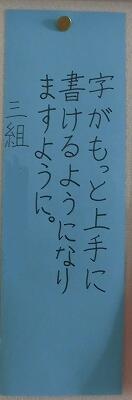 字がもっと上手に
書けるようになり
ますように。
三組